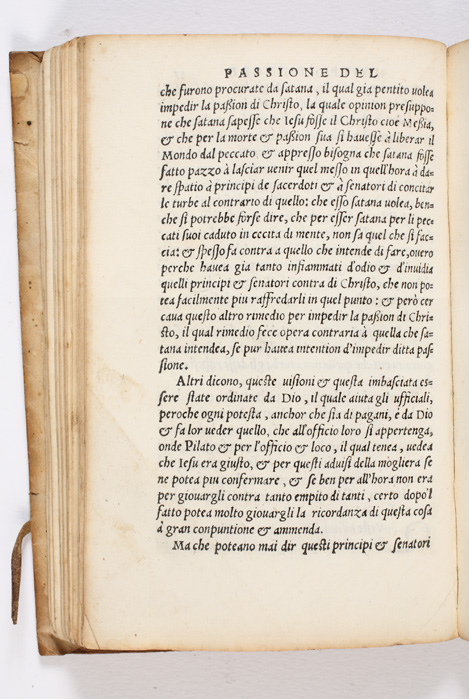 PASSIONE DEL
che furono procurate da ſatana, il qual gia pentito uolea
impedir la paßion di Chriſto, la quale opinion preſuppo-
ne che ſatana ſapeſſe che Ieſu foſſe il Chriſto cioè Meſſia,
& che per la morte & paßion ſua ſi haueſſe à liberar il
Mondo dal peccato, & appreſſo biſogna che ſatana foſſe
fatto pazzo à laſciar uenir quel meſſo in quell'hora à da-
re ſpatio à principi de ſacerdoti & à ſenatori di concitar
le turbe al contrario di quello: che eſſo ſatana uolea, ben-
che ſi potrebbe forſe dire, che per eſſer ſatana per li pec-
cati ſuoi caduto in cecita di mente, non ſa quel che ſi fac-
cia: & ſpeſſo fa contra a quello che intende di fare, ouero
perche hauea gia tanto infiammati d'odio & d'inuidia
quelli principi & ſenatori contra di Chriſto, che non po-
tea facilmente piu raffredarli in quel punto: & però cer
caua queſto altro rimedio per impedir la paßion di Chri-
ſto, il qual rimedio fece opera contraria à quella che ſa-
tana intendea, ſe pur hauea intention d'impedir ditta paſ-
ſione.
Altri dicono, queſte uiſioni & queſta imbaſciata eſ-
ſere ſtate ordinate da Dio, il quale aiuta gli ufficiali,
peroche ogni poteſta, anchor che ſia di pagani, è da Dio
& fa lor ueder quello, che all'officio loro ſi appertenga,
onde Pilato & per l'officio & loco, il qual tenea, uedea
che Ieſu era giuſto, & per queſti aduiſi della mogliera ſe
ne potea piu confermare, & ſe ben per all'hora non era
per giouargli contra tanto empito di tanti, certo dopo'l
fatto potea molto giouargli la ricordanza di queſta coſa
à gran conpuntione & ammenda.
Ma che poteano mai dir queſti principi & ſenatori